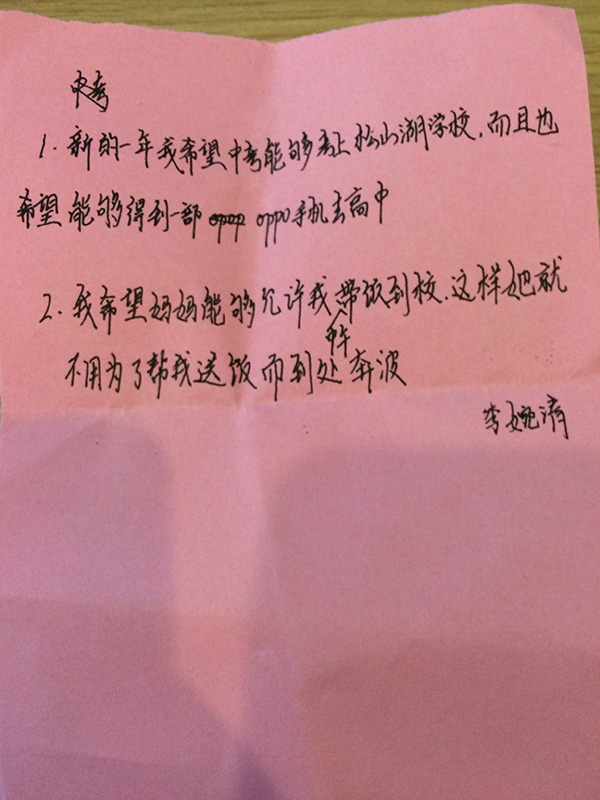 中考
1. 新的一年我希望中考能够考上松山湖学校,而且也
希望能够得到一部 oppo手机去高中
2. 我希望妈妈能够允许我带饭到校,这样她就
中午
不用为了帮我送饭而到处奔波
李婉清